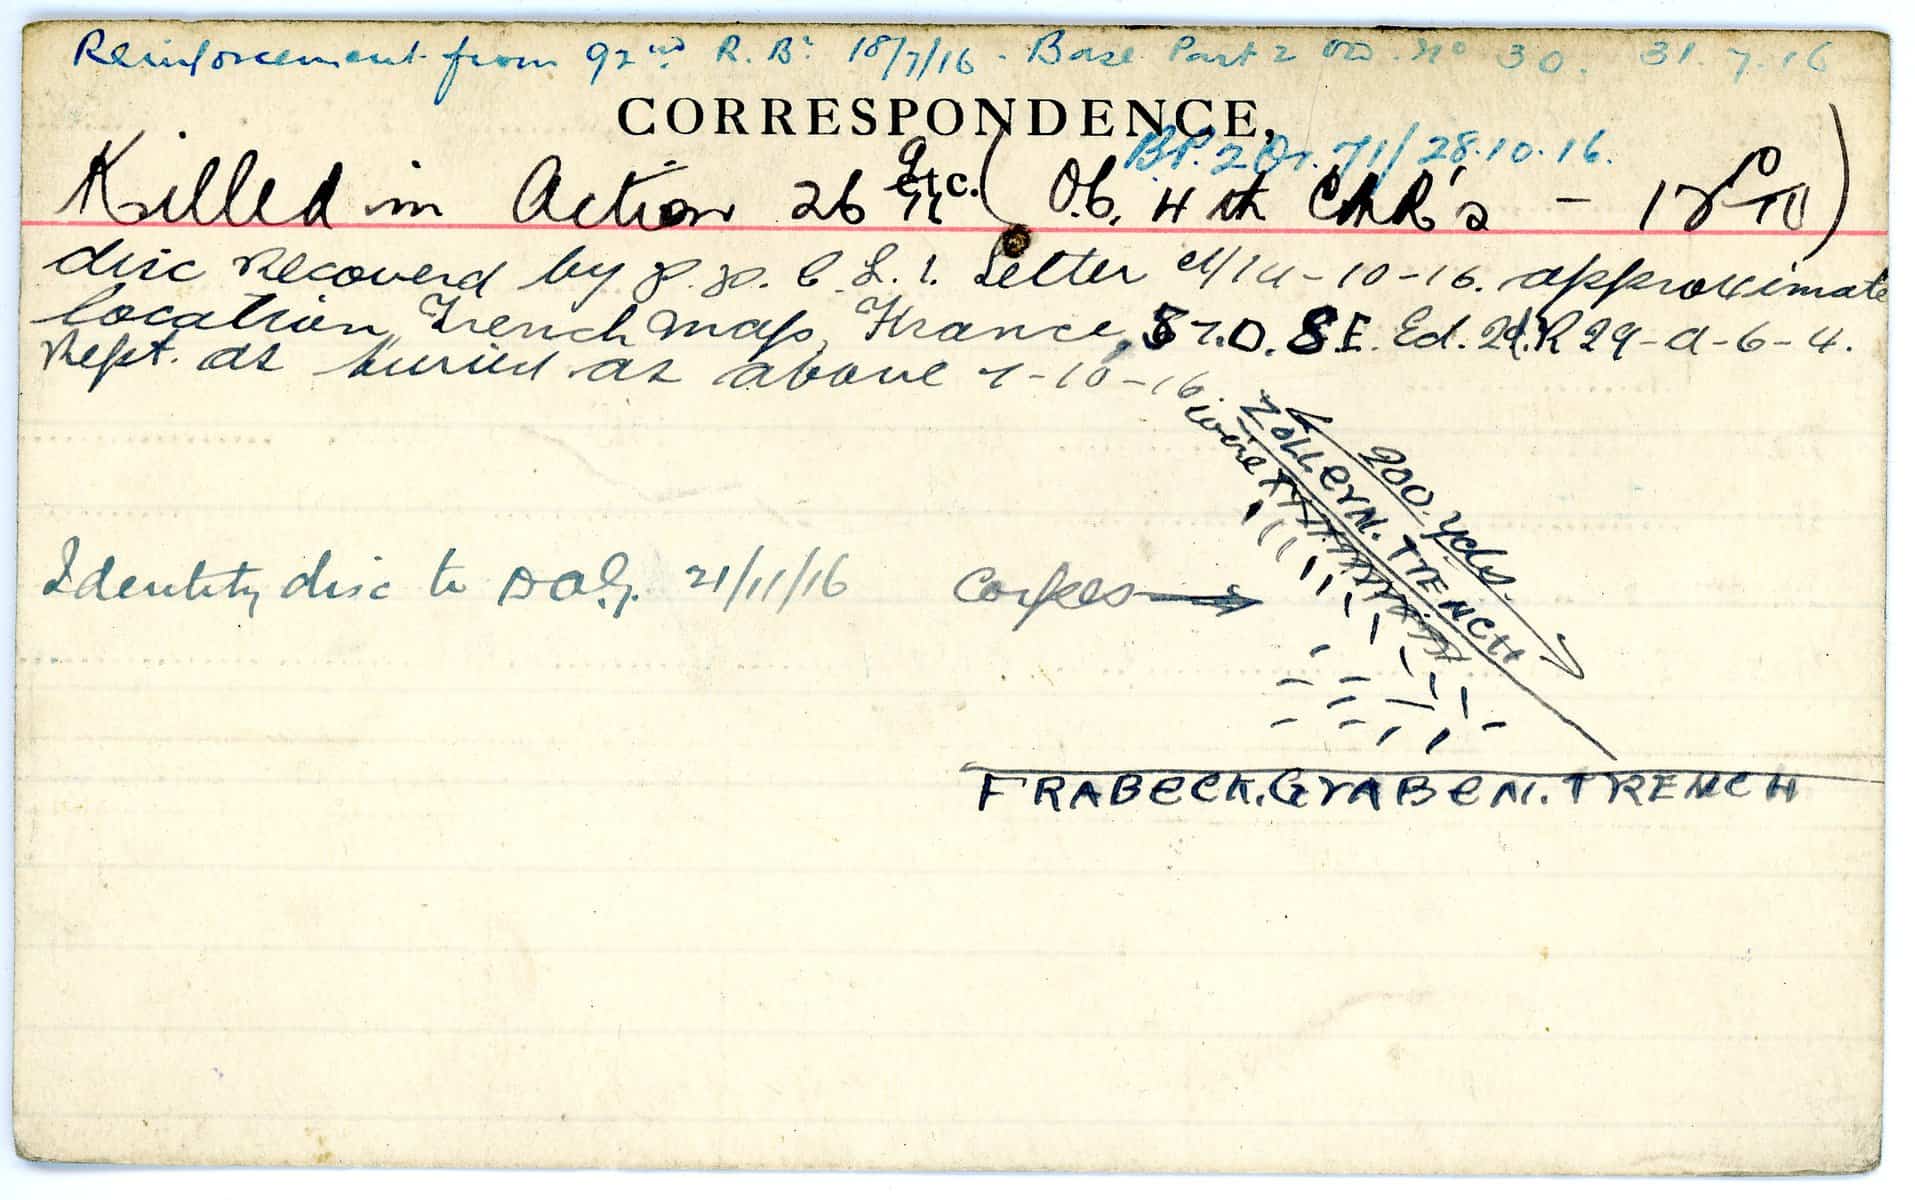 Reinforcement from 92nd R. Bn 18/7/16 - Base Part 2 OD. No 30. 31.7.16
CORRESPONDENCE,
etc.
B.P. 2 Or. 71/28.10.16.
Killed in Action 26 9 (O.C. 4th CMR's -
disc recoverd by P.P.C.L.I. Letter d/14-10-16. approximate
location, Trench Map, France, 57.D. S.E. Ed. 2d. R 29-a-6-4.
Rept. as buried as above 7-10-16.
200. yds.
ZOLLerN. TrENCH
wire
Identity disc to DAG. 21/11/16
Corpses
FRABeCK. GrABeN. TRENCH